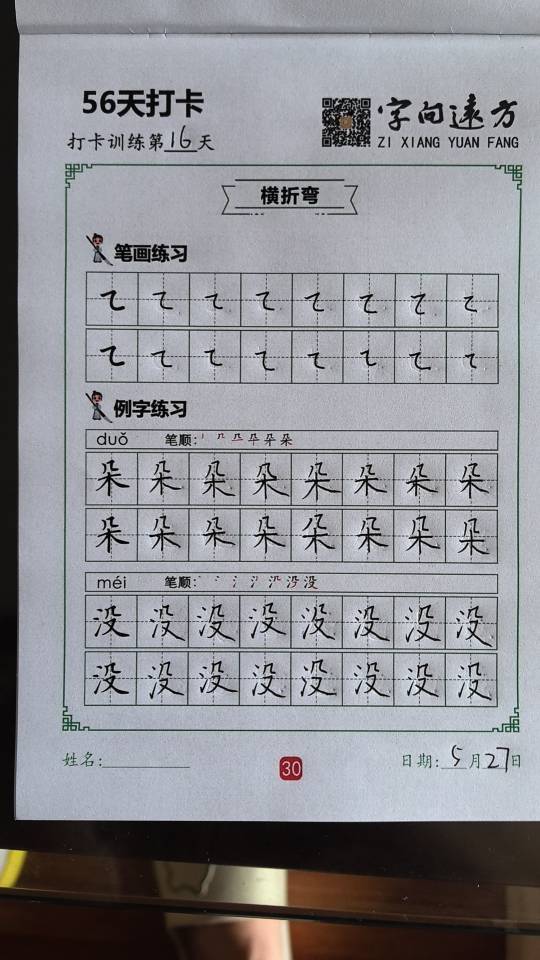 56天打卡
字向远方
打卡训练第16天
ZI XIANG YUAN FANG
横折弯
笔画练习
㇍ ㇍ ㇍ ㇍ ㇍ ㇍ ㇍ ㇍
㇍ ㇍ ㇍ ㇍ ㇍ ㇍ ㇍ ㇍
例字练习
duǒ 笔顺:
朵 朵 朵 朵 朵 朵 朵 朵
朵 朵 朵 朵 朵 朵 朵 朵
méi 笔顺:
没 没 没 没 没 没 没 没
没 没 没 没 没 没 没 没
姓名:
30
日期:5月27日